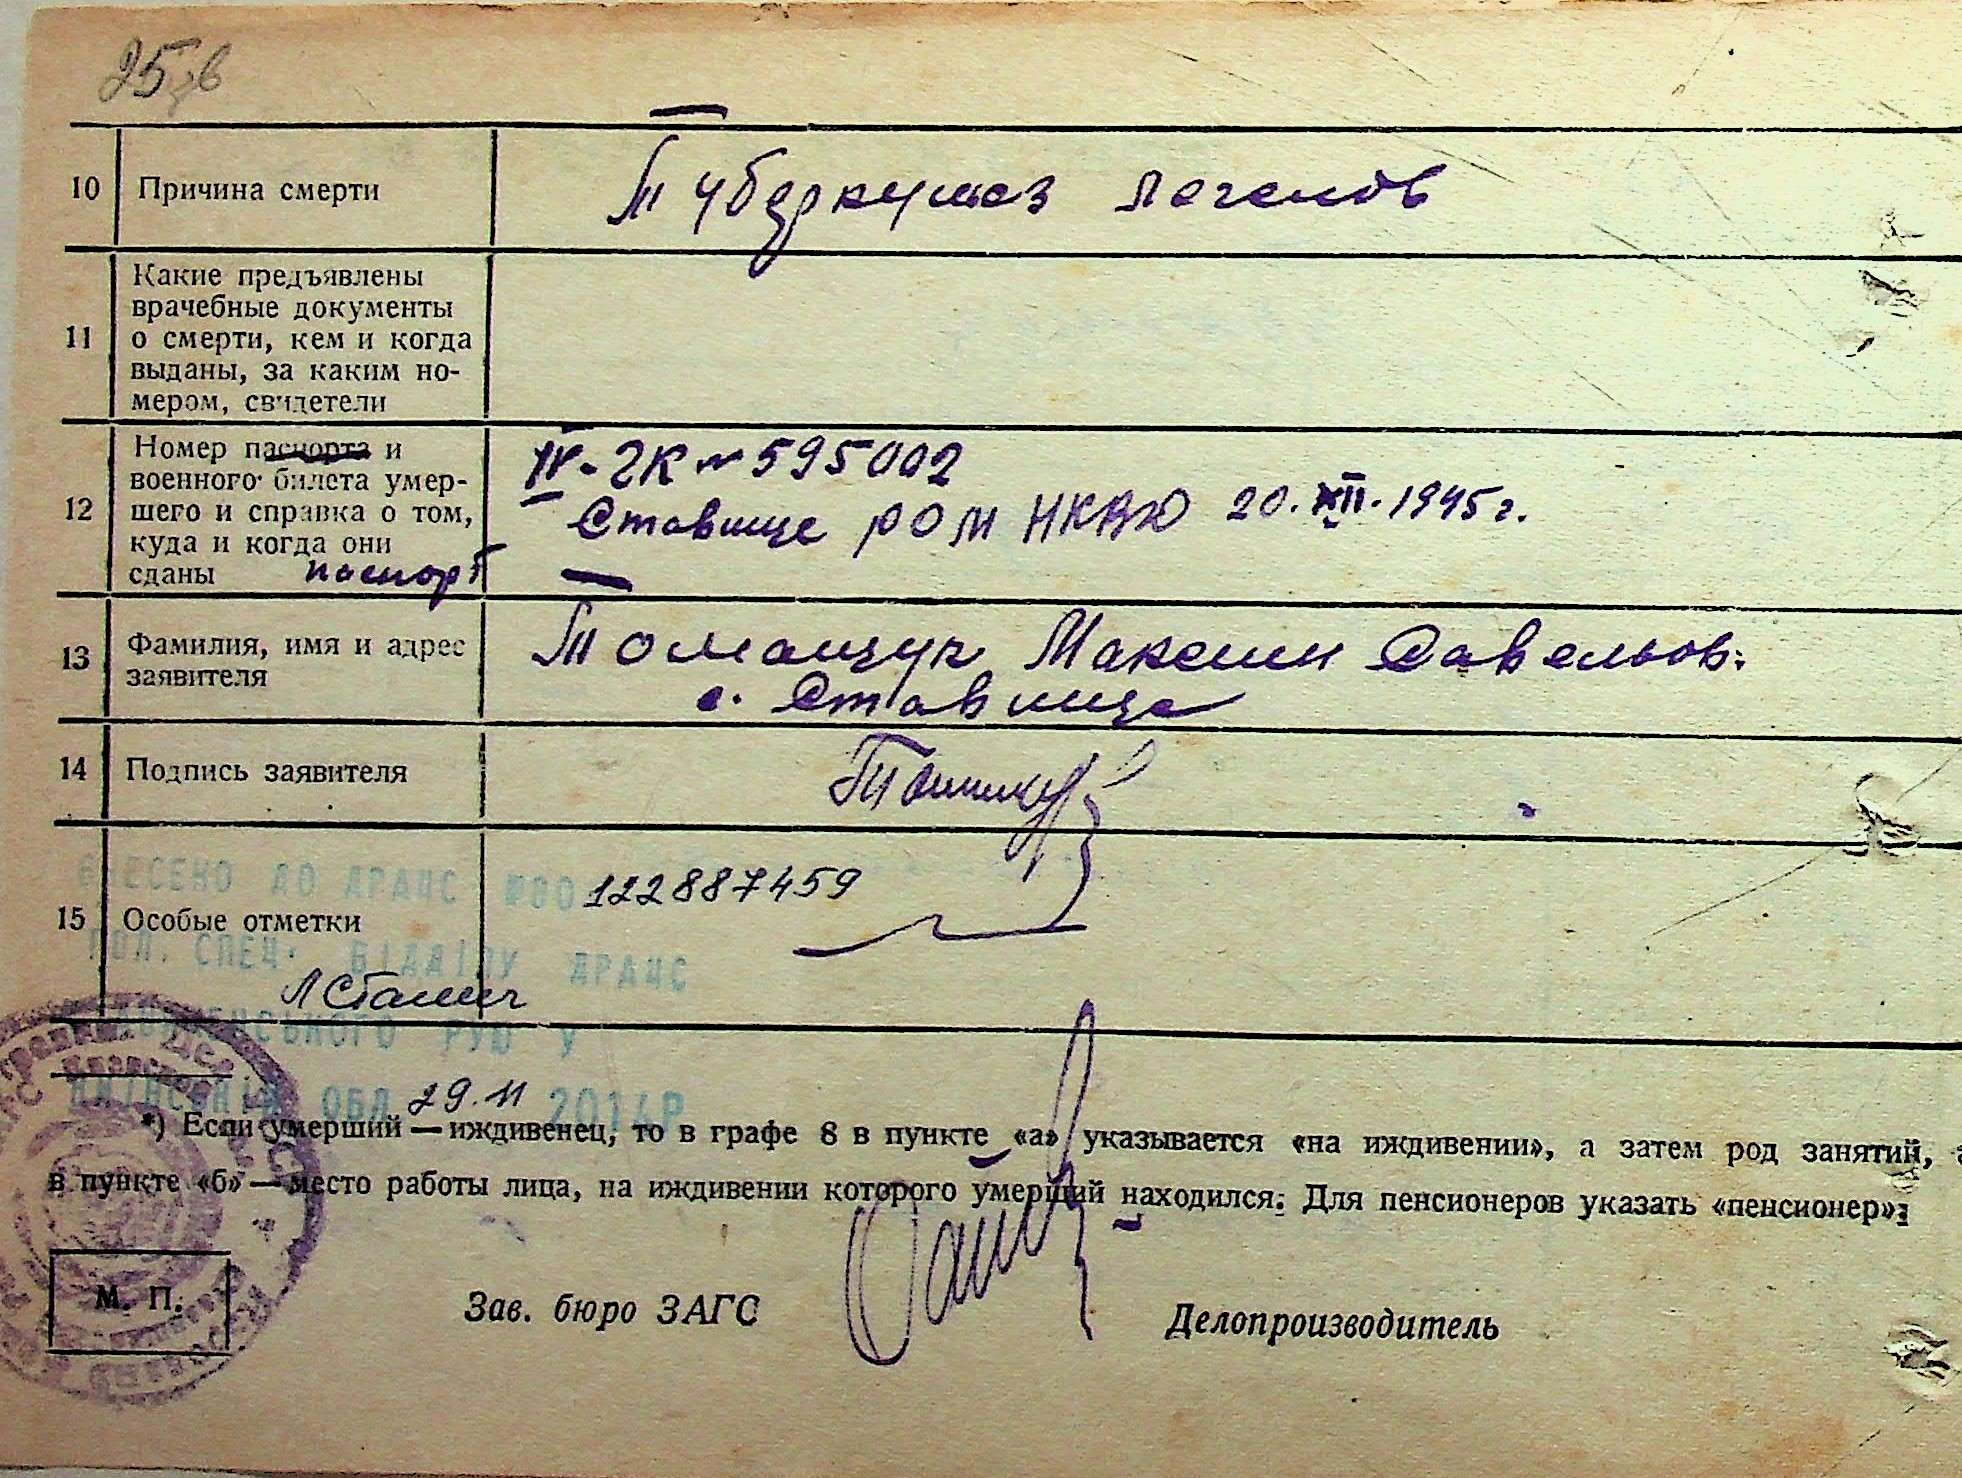 25 зв
10 Причина смерти Туберкулез легенов
11 Какие предъявлены
врачебные документы
о смерти, кем и когда
выданы, за каким но-
мером, свидетели
12 Номер паспорта и
военного билета умер-
шего и справка о том,
куда и когда они
сданы паспорт
IV-ЧК № 595002
Ставище РОМ НКВД 20. XII. 1945 г.
13 Фамилия, имя и адрес
заявителя
Томащук Максим Савельов.
с. Ставище
14 Подпись заявителя
15 Особые отметки 122887459
ВНЕСЕНО ДО ДРАЦС
ГОЛ. СПЕЦ. ВІДДІЛУ ДРАЦС
РУЮ У
ОБЛ 29.11 2014Р
*) Если умерший — иждивенец, то в графе 8 в пункте «а» указывается «на иждивении», а затем род занятий, а
в пункте «б» — место работы лица, на иждивении которого умерший находился. Для пенсионеров указать «пенсионер».
М. П.
Зав. бюро ЗАГС
Делопроизводитель